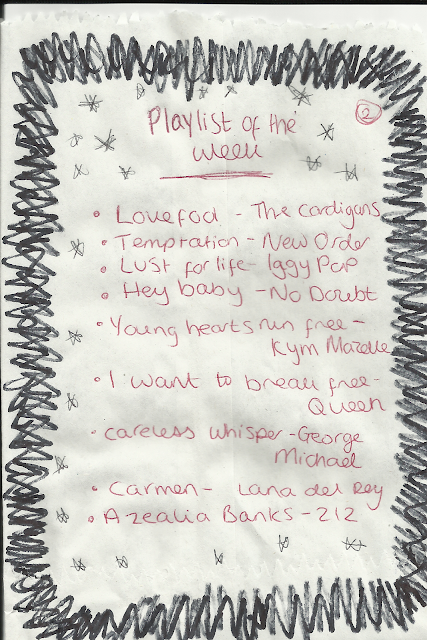 2
Playlist of the
week
• Lovefool - The Cardigans
• Temptation - New Order
• Lust for life - Iggy Pop
• Hey baby - No Doubt
• Young hearts run free -
Kym Mazelle
• I want to break free -
Queen
• careless whisper - George
Michael
• Carmen - Lana del Rey
• Azealia Banks - 212